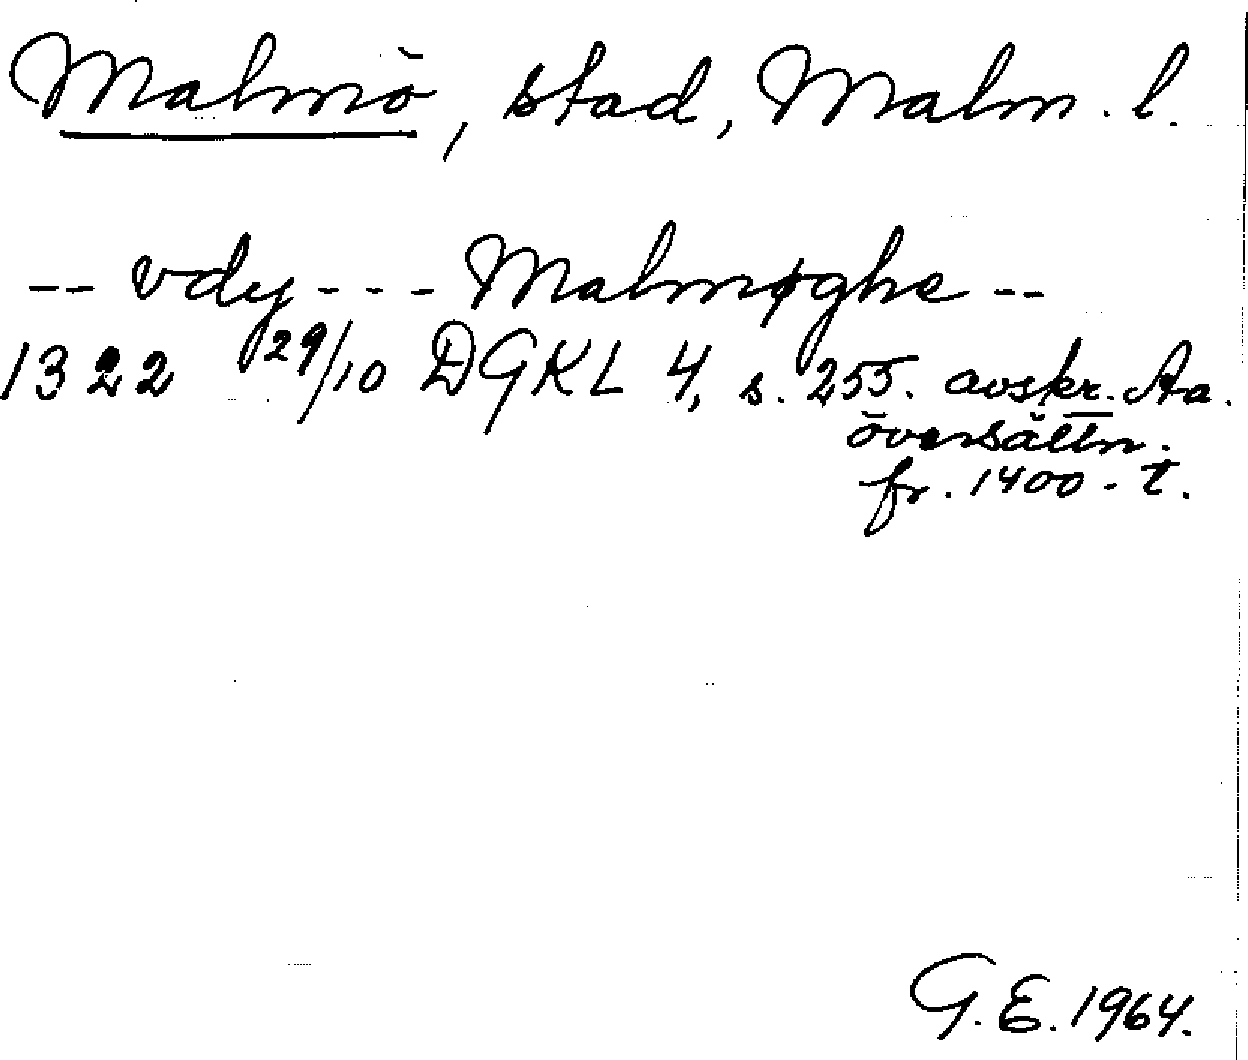 Malmö, stad, Malm. l.
-- vdy --- Malmøghe --
1322 29/10 DGKL 4, s. 255. avskr. Aa.
översättn.
fr. 1400-t.
G. E. 1964.